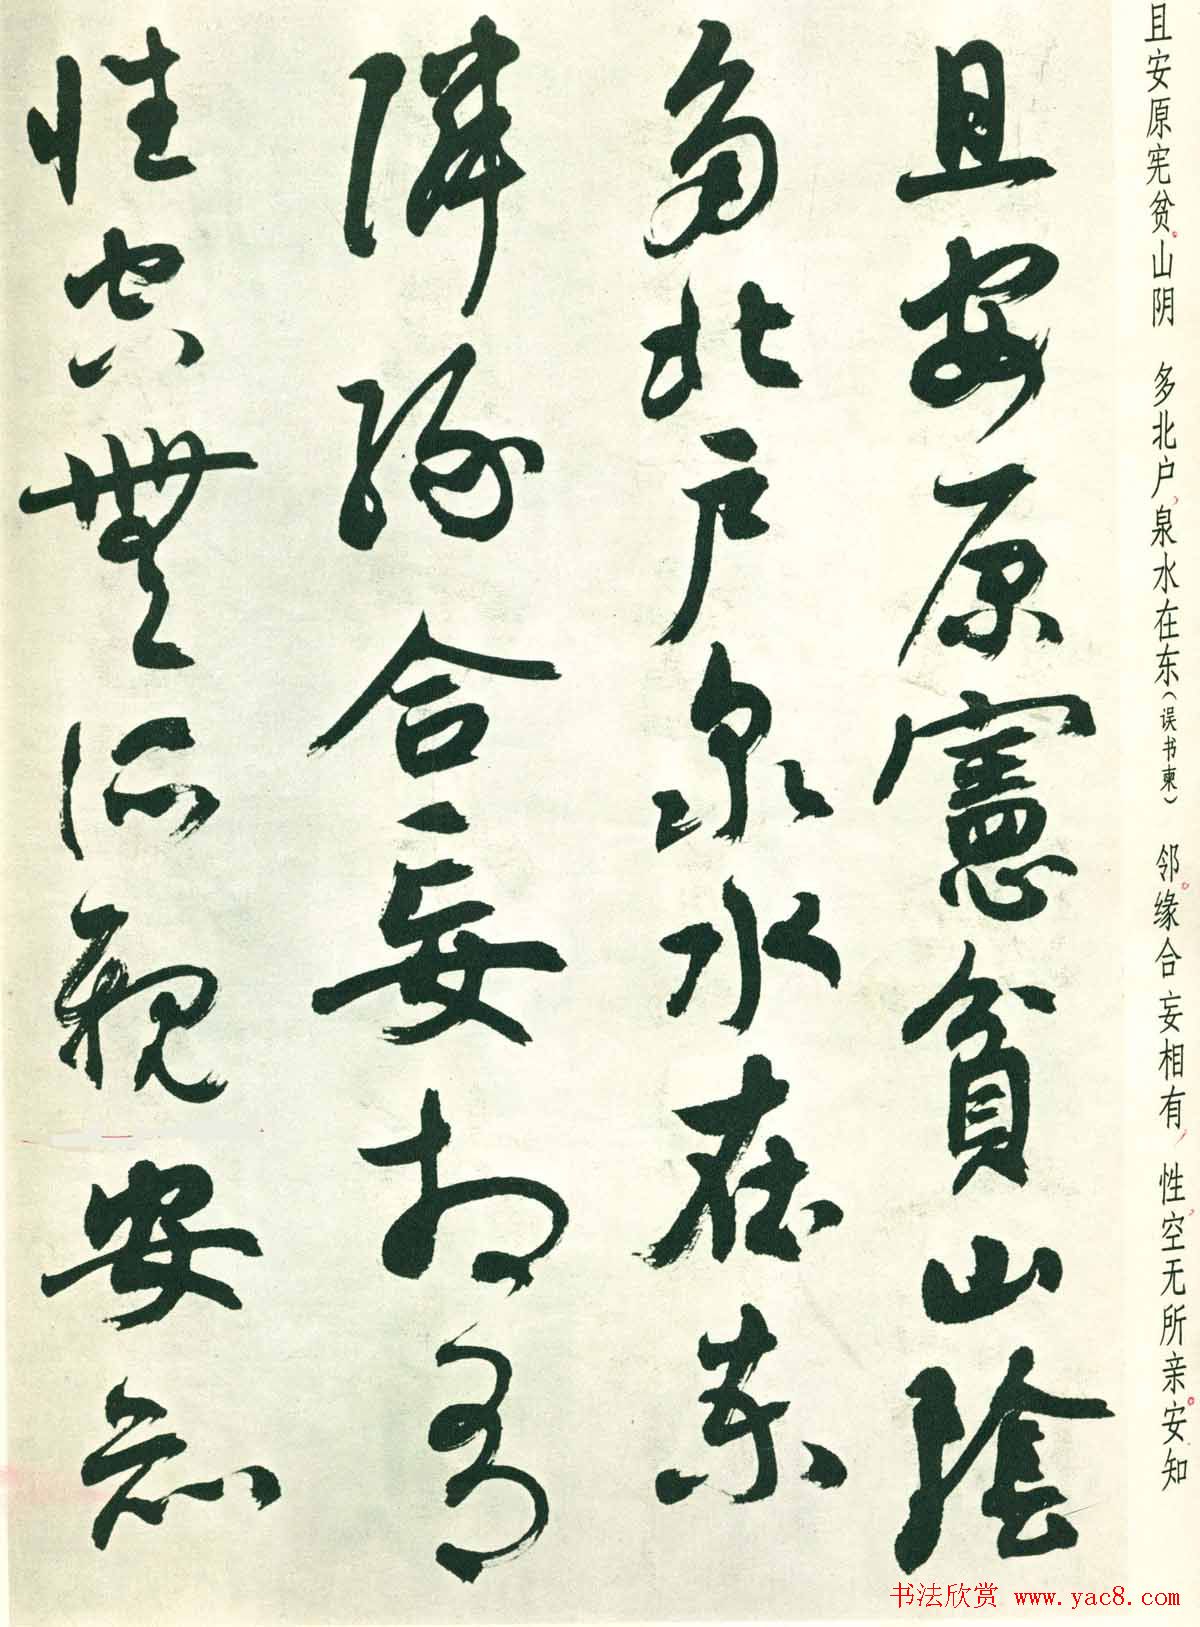 且安原宪贫山阴 多北户泉水在东（误书柬） 邻缘合妄相有 性空无所亲安知
且安原憲貧山陰
多北户泉水在柬
隣緣合妄相有
性空無所親安知
书法欣赏 www.yac8.com